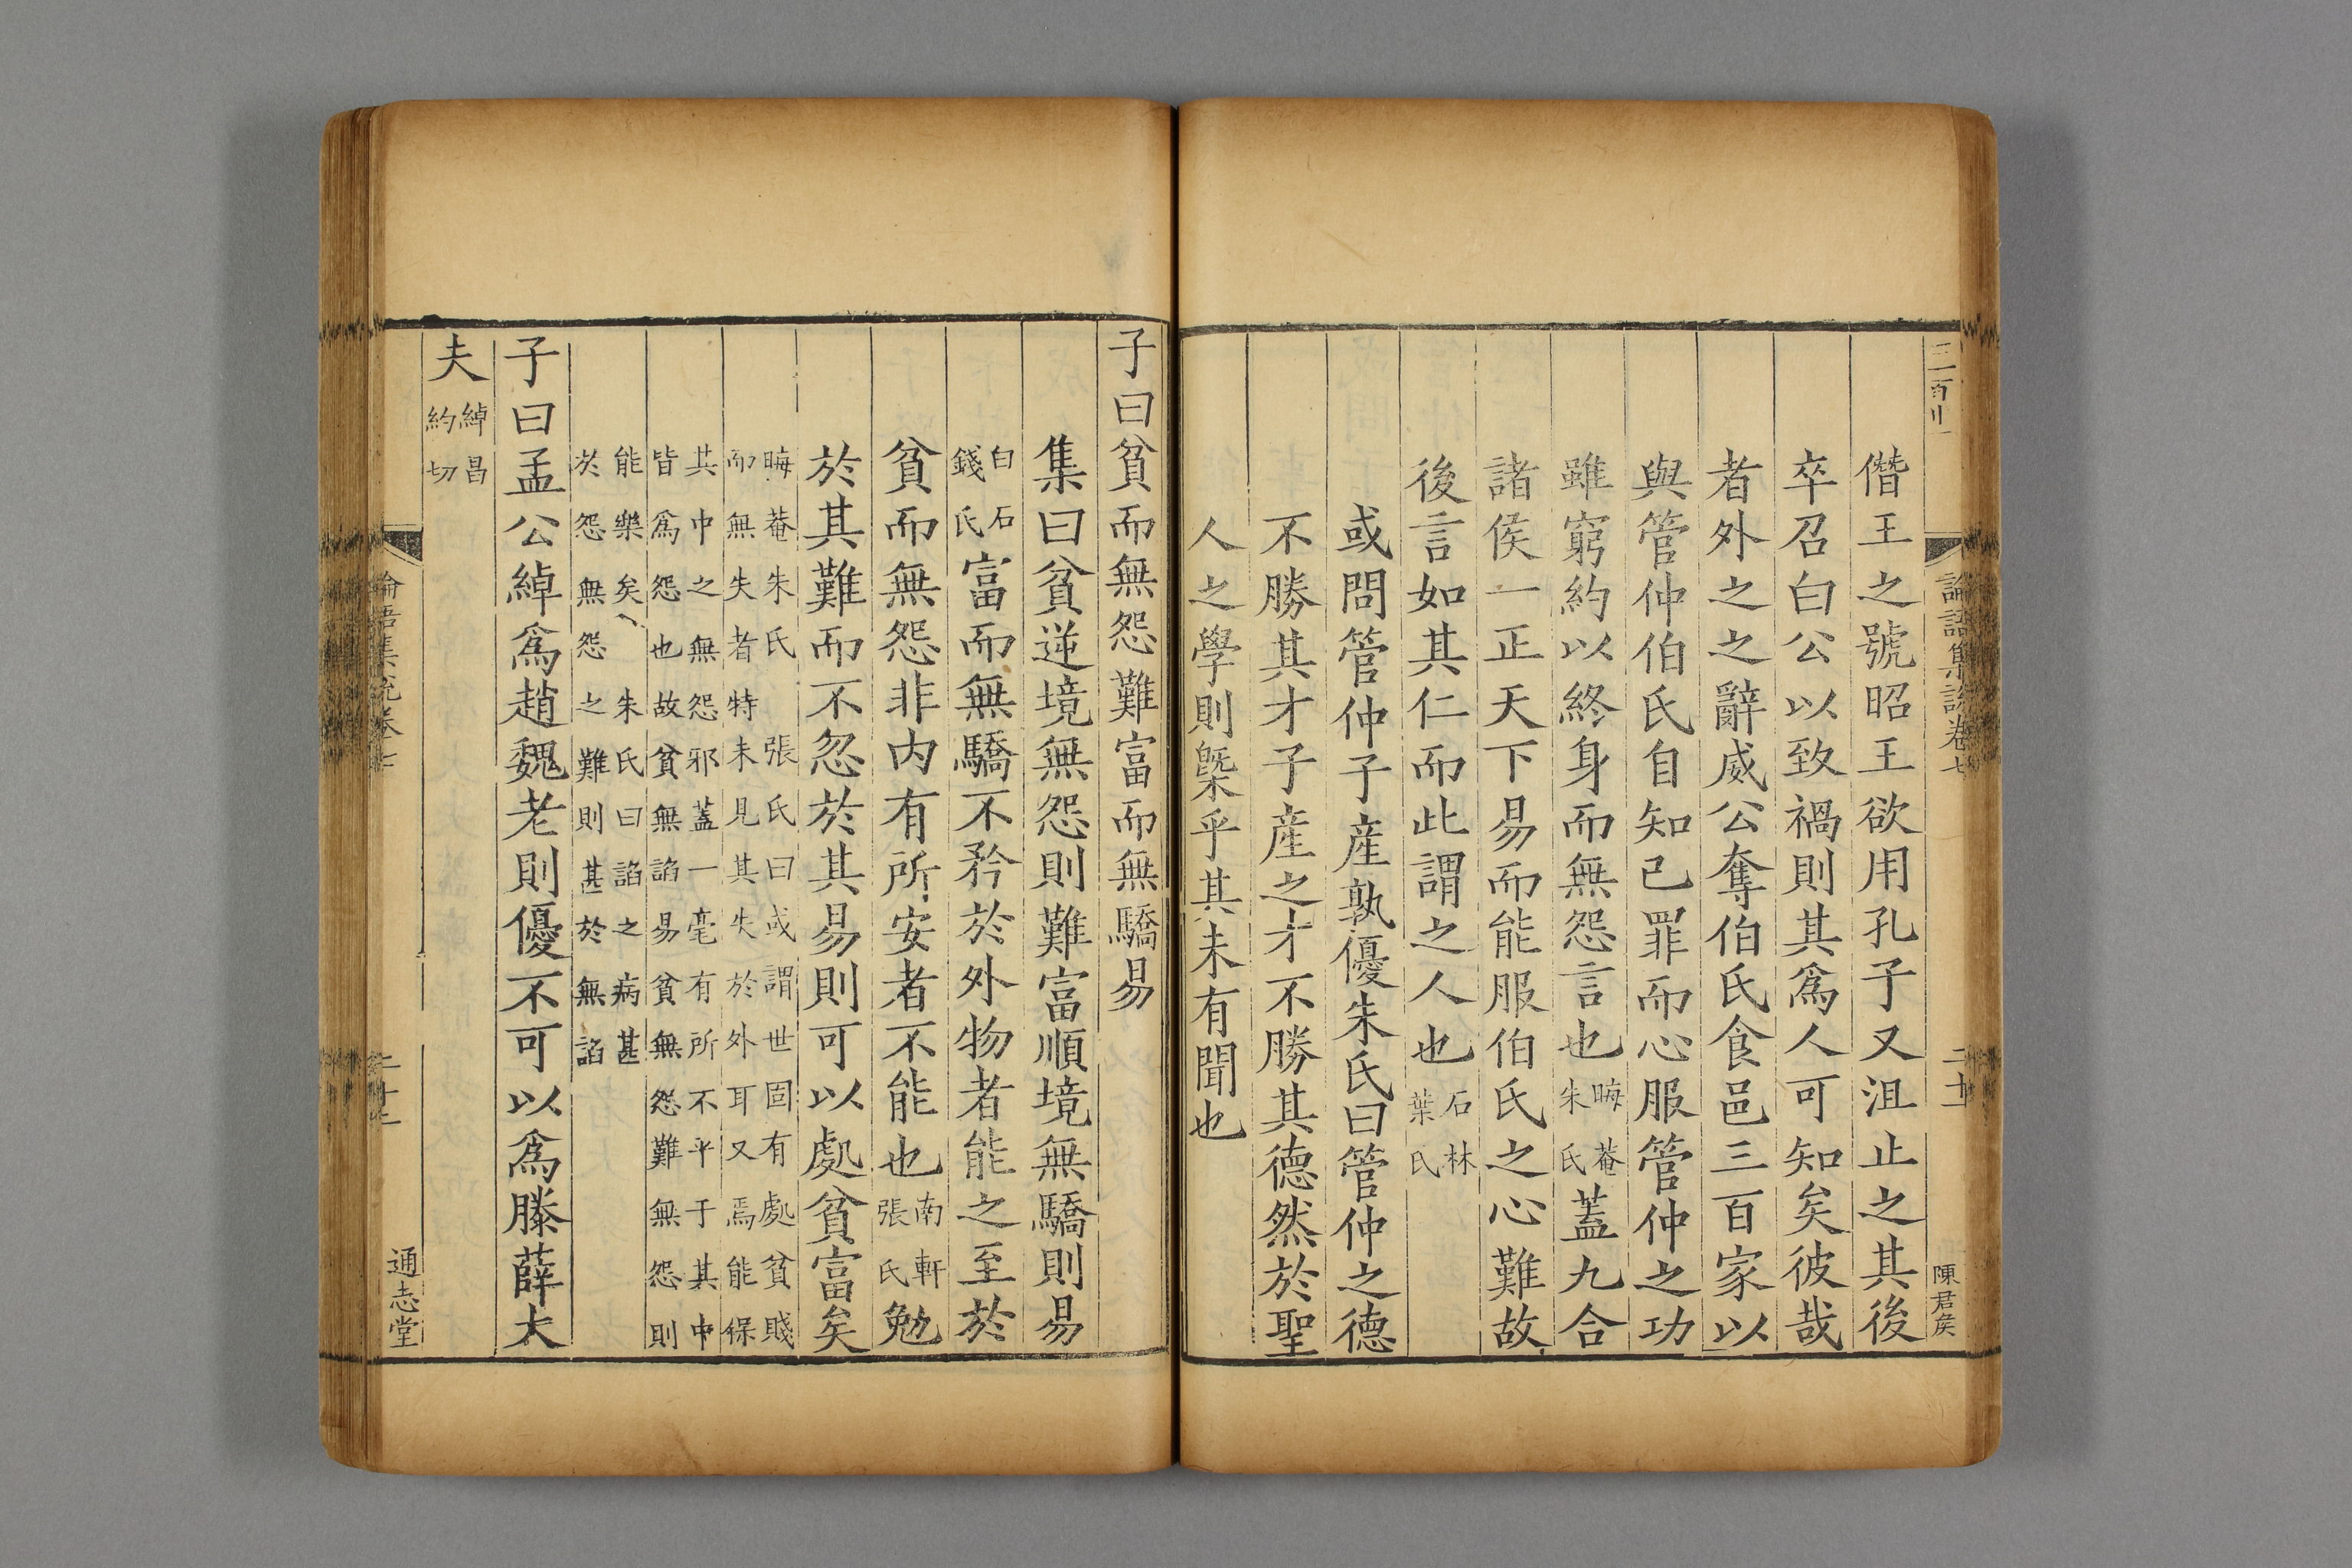 僭王之號昭王欲用孔子又沮止之其後
卒召白公以致禍則其爲人可知矣彼哉
者外之之辭威公奪伯氏食邑三百家以
與管仲伯氏自知已罪而心服管仲之功
雖窮約以終身而無怨言也晦菴朱氏蓋九合
諸侯一正天下易而能服伯氏之心難故
後言如其仁而此謂之人也石林葉氏
或問管仲子産孰優朱氏曰管仲之德
不勝其才子産之才不勝其德然於聖
人之學則槩乎其未有聞也
論語集說卷七
陳君矦
子曰貧而無怨難富而無驕易
集曰貧逆境無怨則難富順境無驕則易
白石錢氏富而無驕不矜於外物者能之至於
貧而無怨非内有所安者不能也南軒張氏勉
於其難而不忽於其易則可以處貧富矣
晦菴朱氏 張氏曰或謂世固有處貧賤
而無失者特未見其失於外耳又焉能保
其中之無怨邪蓋一毫有所不平于其中
皆爲怨也故貧無諂易貧無怨難無怨則
能樂矣 朱氏曰諂之病甚
於怨無怨之難則甚於無諂
子曰孟公綽爲趙魏老則優不可以爲滕薛大
夫綽昌約切
論語集說卷七
通志堂